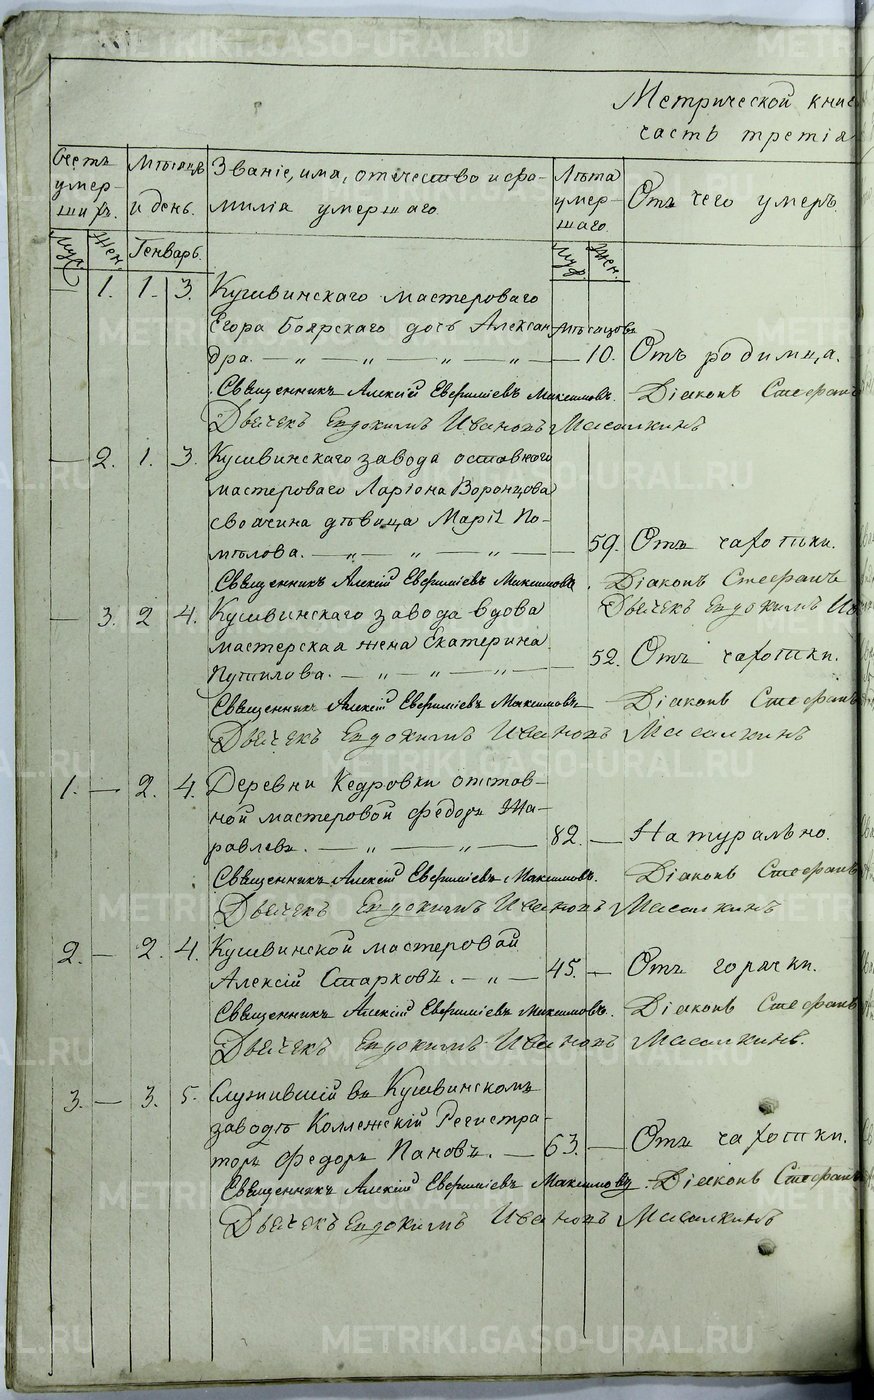 METRIKI.GASO-URAL.RU
Метрической
часть третія
Счетъ умершихъ. Мѣсяцъ и день. Званіе, имя, отечество и фамилія умершаго. Лѣта умершаго. Отъ чего умеръ.
Муж. Жен. Генварь. Муж. Жен.
— 1. 1. 3. Кушвинскаго мастероваго
Егора Боярскаго дочь Алексан- мѣсяцовъ
дра. — „ — „ — „ — „ — 10. Отъ родимца.
Священникъ Алексій Евфиміевъ Максимовъ. Діаконъ Стефанъ
Дьячекъ Евдокимъ Ивановъ Масалкинъ
— 2. 1. 3. Кушвинскаго завода отставнаго
мастероваго Ларіона Воронцова
своячина дѣвица Марія По-
мѣлова. — „ — „ — „ — 59. Отъ чахотки.
Священникъ Алексій Евфиміевъ Максимовъ. Діаконъ Стефанъ
Дьячекъ Евдокимъ
— 3. 2 4. Кушвинскаго завода вдова
мастерская жена Екатерина
Путилова. — „ — „ — „ — 52. Отъ чахотки.
Священникъ Алексій Евфиміевъ Максимовъ Діаконъ Стефанъ
Дьячекъ Евдокимъ Ивановъ Масалкинъ
1. — 2. 4. Деревни Кедровки отстав-
ной мастеровой Федоръ Жу-
равлевъ. — „ — „ — 82. — Натурально.
Священникъ Алексій Евфиміевъ Максимовъ. Діаконъ Стефанъ
Дьячекъ Евдокимъ Ивановъ Масалкинъ
2. — 2. 4. Кушвинской мастеровой
Алексій Старковъ. — „ — 45. — Отъ горячки.
Священникъ Алексій Евфиміевъ Максимовъ. Діаконъ Стефанъ
Дьячекъ Евдокимъ Ивановъ Масалкинъ.
3. — 3. 5. Служившій въ Кушвинскомъ
заводѣ Коллежскій Регистра-
торъ Федоръ Пановъ. — 63. — Отъ чахотки.
Священникъ Алексій Евфиміевъ Максимовъ. Діаконъ Стефанъ
Дьячекъ Евдокимъ Ивановъ Масалкинъ